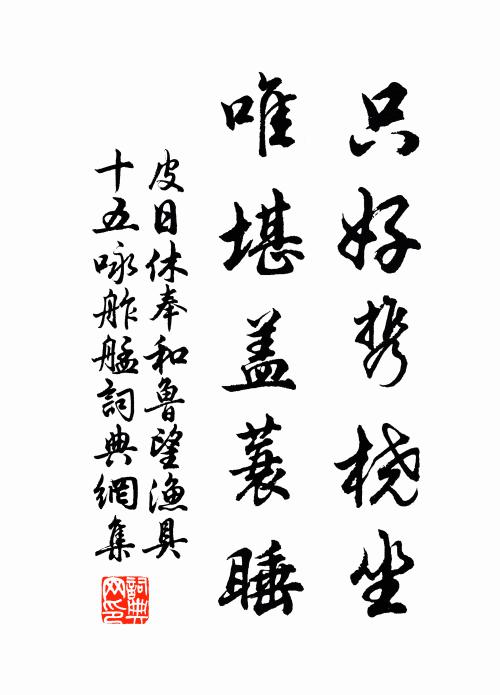 只好携桡坐
唯堪盖蓑睡
皮日休奉和魯望漁具
十五咏舴艋詞典網集
詞典
网印